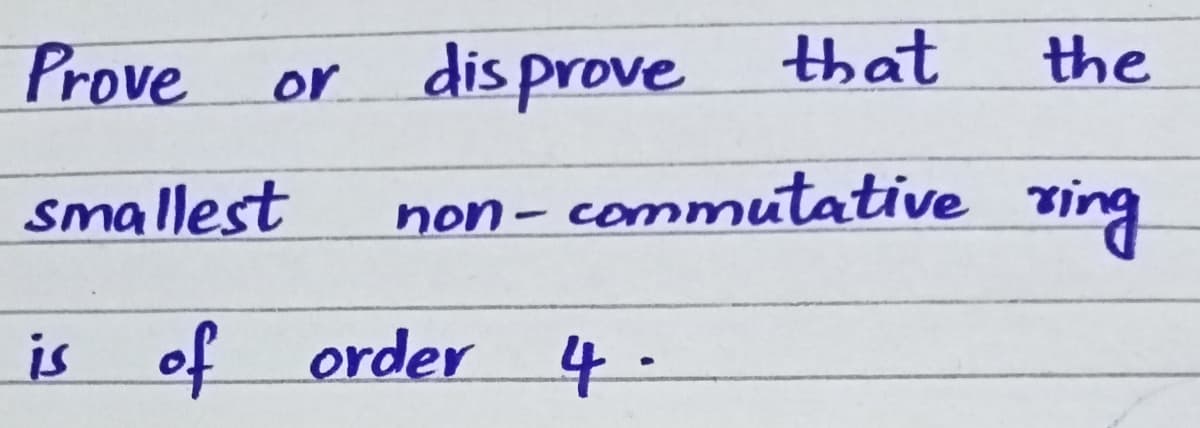 Prove or disprove that the
smallest non-commutative ring
is of order 4.